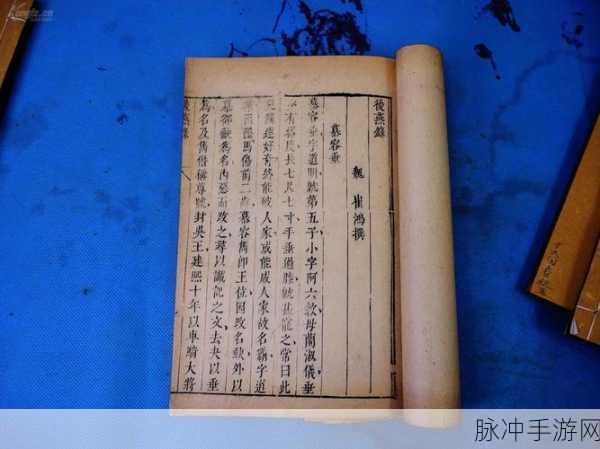 後燕錄
魏 崔鴻撰
慕容垂
慕容垂字道明皝第五子小字阿六敦母蘭淑儀垂
有 長七尺七寸手垂過膝皝甚寵之常曰此
達好奇終能破人家或能成人家故名霸字道
馬傷前二 慕容儁即王位因改名 外以
慕郤 為名內惡而改之尋以讖記之文去夬以垂
為名及儁僭稱尊號封吳王建熙十年以車騎大將
燕錄
脉冲手游网